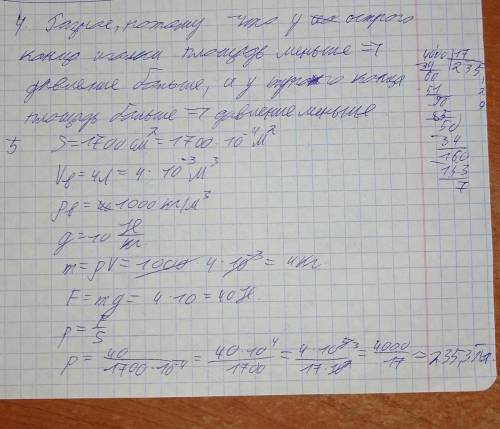 4 Разное, потому что у острого
конца иголки площадь меньше =>
давление больше, а у тупого конца
площадь больше => давление меньше
5 S = 1700 см² = 1700 · 10⁻⁴ м²
Vв = 4л = 4 · 10⁻³ м³
ρв = 1000 кг/м³
g = 10 Н/кг
m = ρV = 1000 · 4 · 10⁻³ = 4кг
F = mg = 4 · 10 = 40 Н.
p = F/S
p = 40/1700·10⁻⁴ = 40·10⁴/1700 = 4·10⁵ ³/17·10² = 4000/17 ≈ 235,3 Па.
4000 | 17
34 | 235
60
51
90
85
50
34
160
143
7